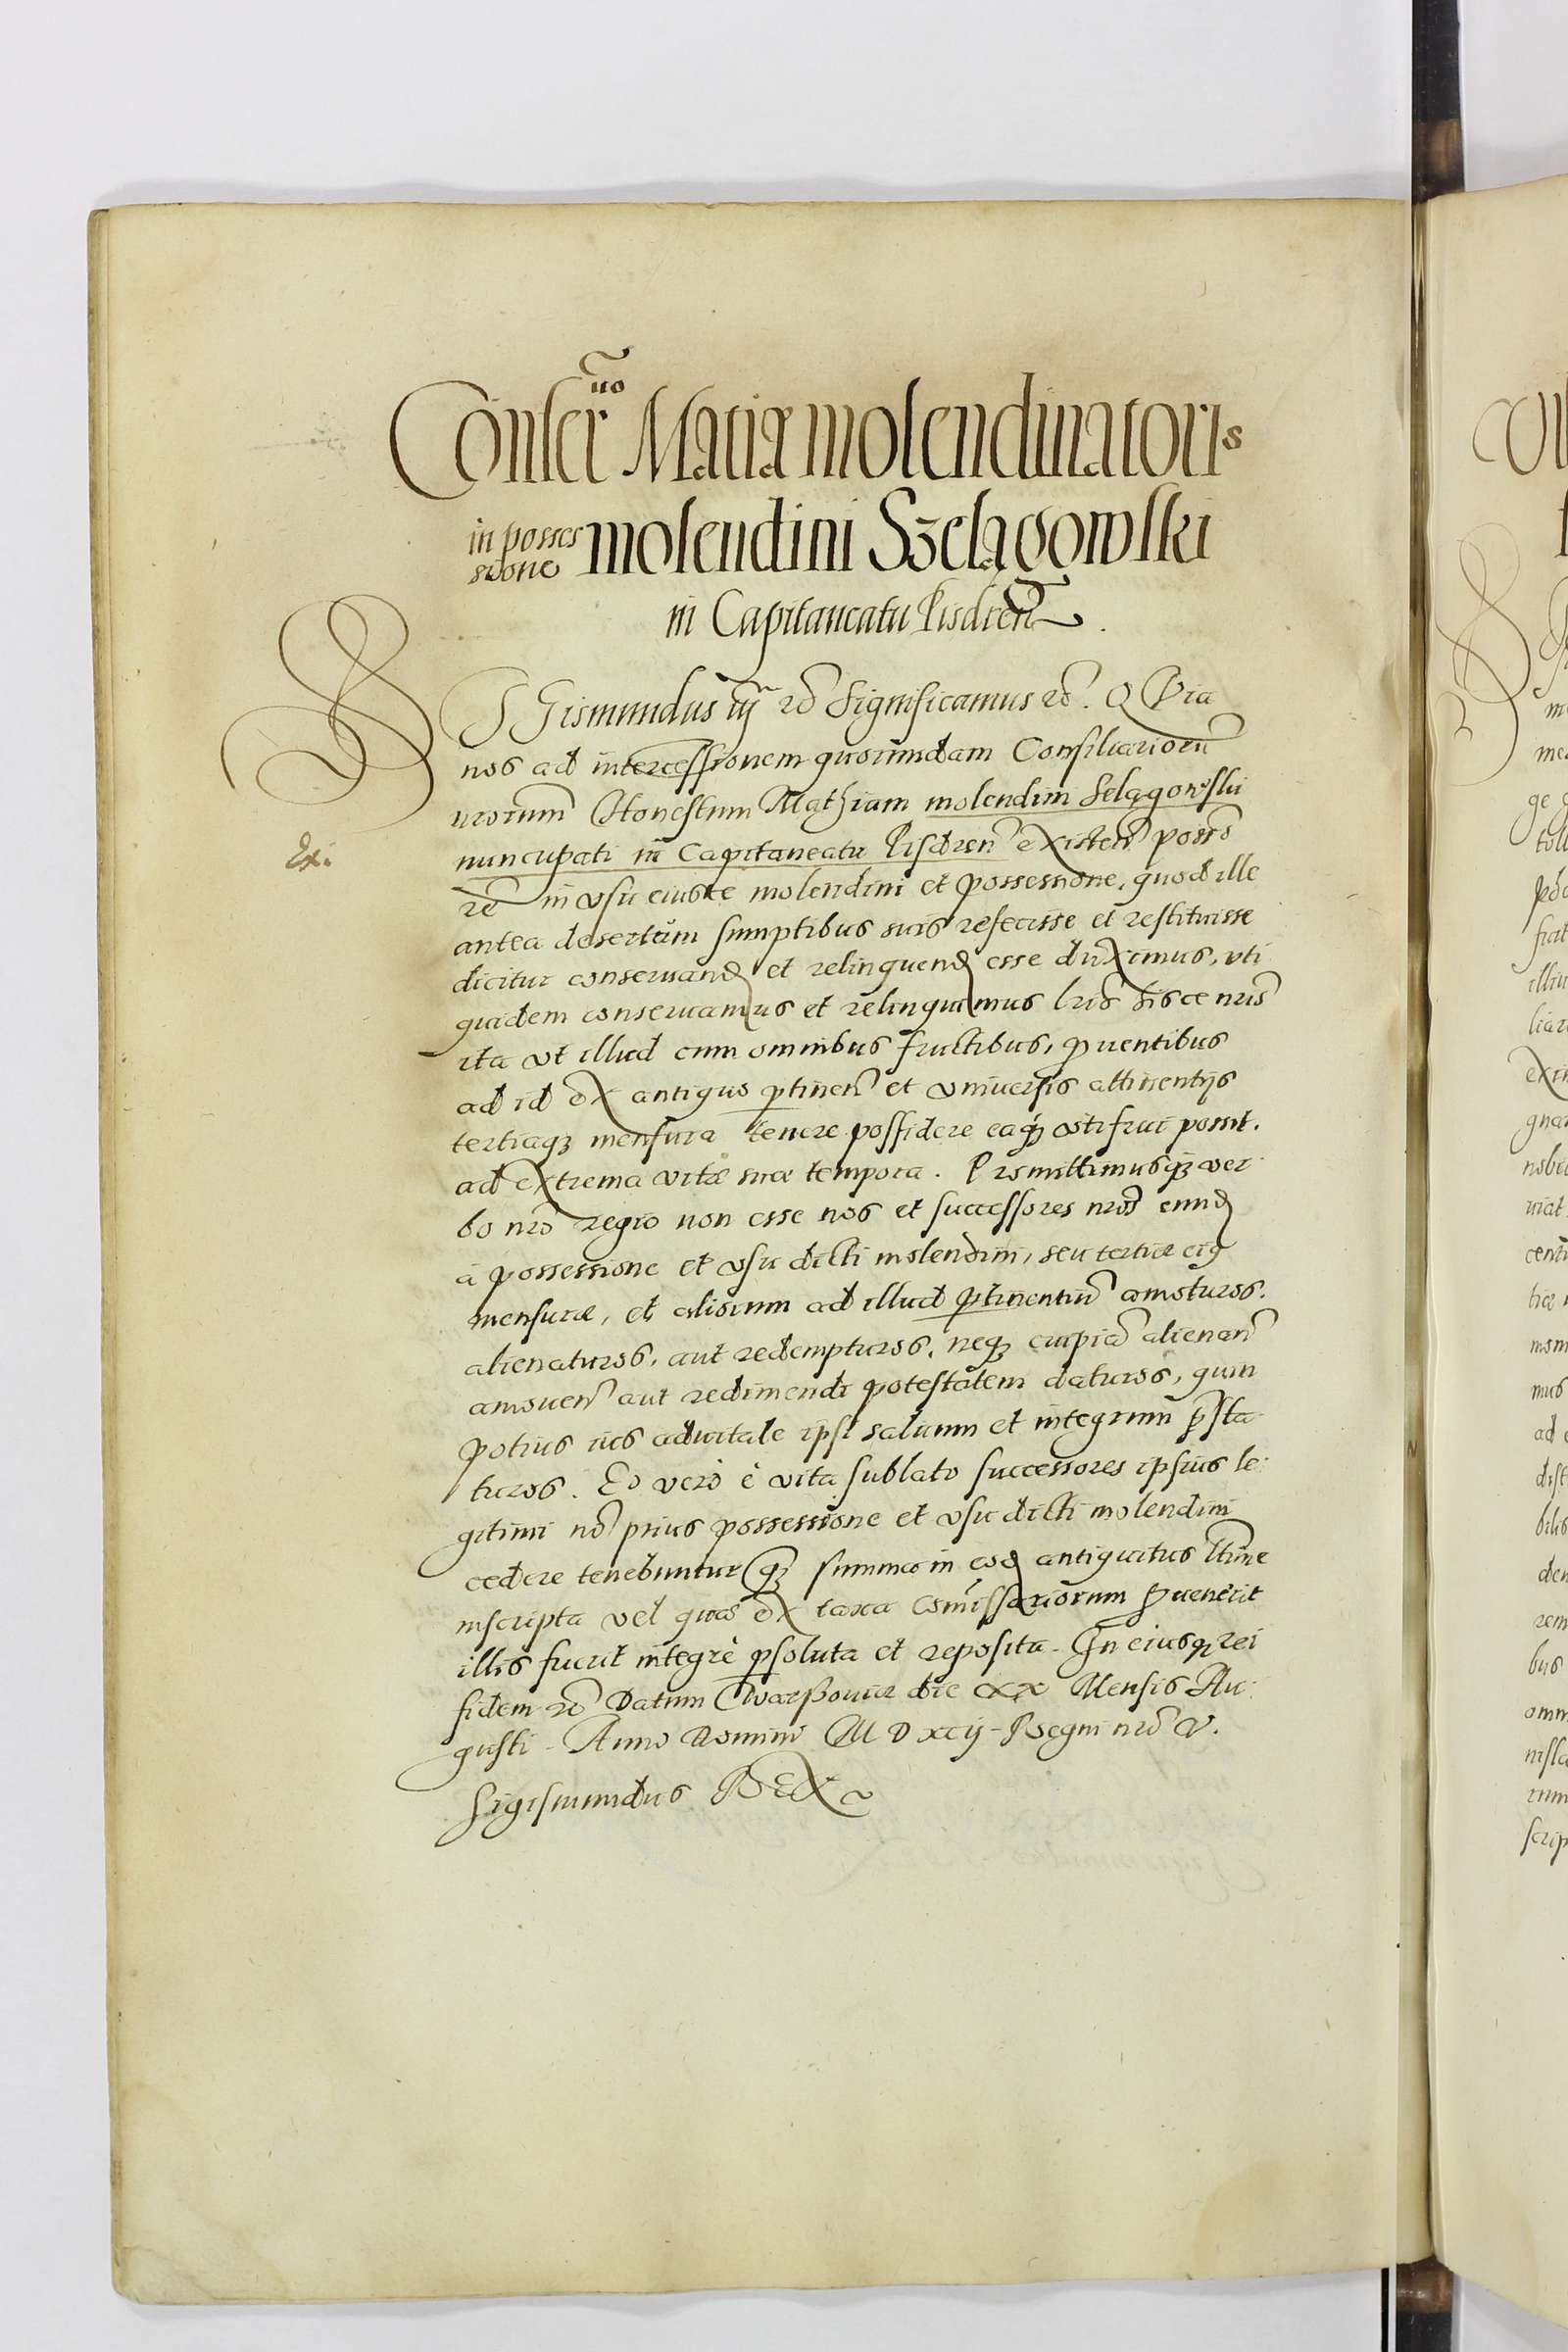 Conser uo Matiæ molendinatoris
in posses
sione molendini Szelągowski
in Capitaneatu Pisdren
SIGismundus iij rc Significamus rc. QVia
nos ad intercessionem quorundam Consiliarioru
nrorum Honestum Mathiam molendini Selągowski
nuncupati in Capitaneatu Pisdren existen posso
re in vsu eiusce molendini et possessione, quod ille
antea desertum sumptibus suis refecisse et restituisse
dicitur conseruand et relinquend esse duximus, vti
quidem conseruamus et relinquimus lris hisce nris
ita vt illud cum omnibus fructibus, puentibus
ad id ex antiquo ptinen et vniuersis attinentijs
tertiaq mensura tenere possidere eaq vtifrui possit.
ad extrema vitæ suæ tempora. Promittimusq ver
bo nro regio non esse nos et successores nros eund
à possessione et vsu dicti molendini, seu tertiæ eiq
mensuræ, et aliorum ad illud ptinentiu amoturos.
alienaturos, aut redempturos, neq cuipia alienan
amouen aut redimendi potestatem daturos, quin
potius ius aduitale ipsi saluum et integrum psta
turos. Eo verò è vita sublato successores ipsius le
gitimi no prius possessione et vsu dicti molendini
cedere tenebuntur q summa in eod antiquitus ltime
inscripta vel quæ ex taxa Comissariorum puenerit
illis fuerit integrè psoluta et reposita. In eiusq rei
fidem rc Datum Warßouiæ die XX Mensis Au
gusti. Anno Domini M D xcij Regni nro V.
Sigismundus REX
Ex.